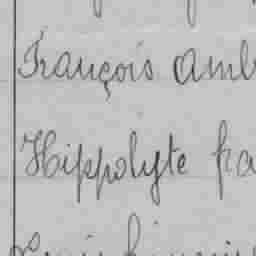 François amb
Hippolyte fra